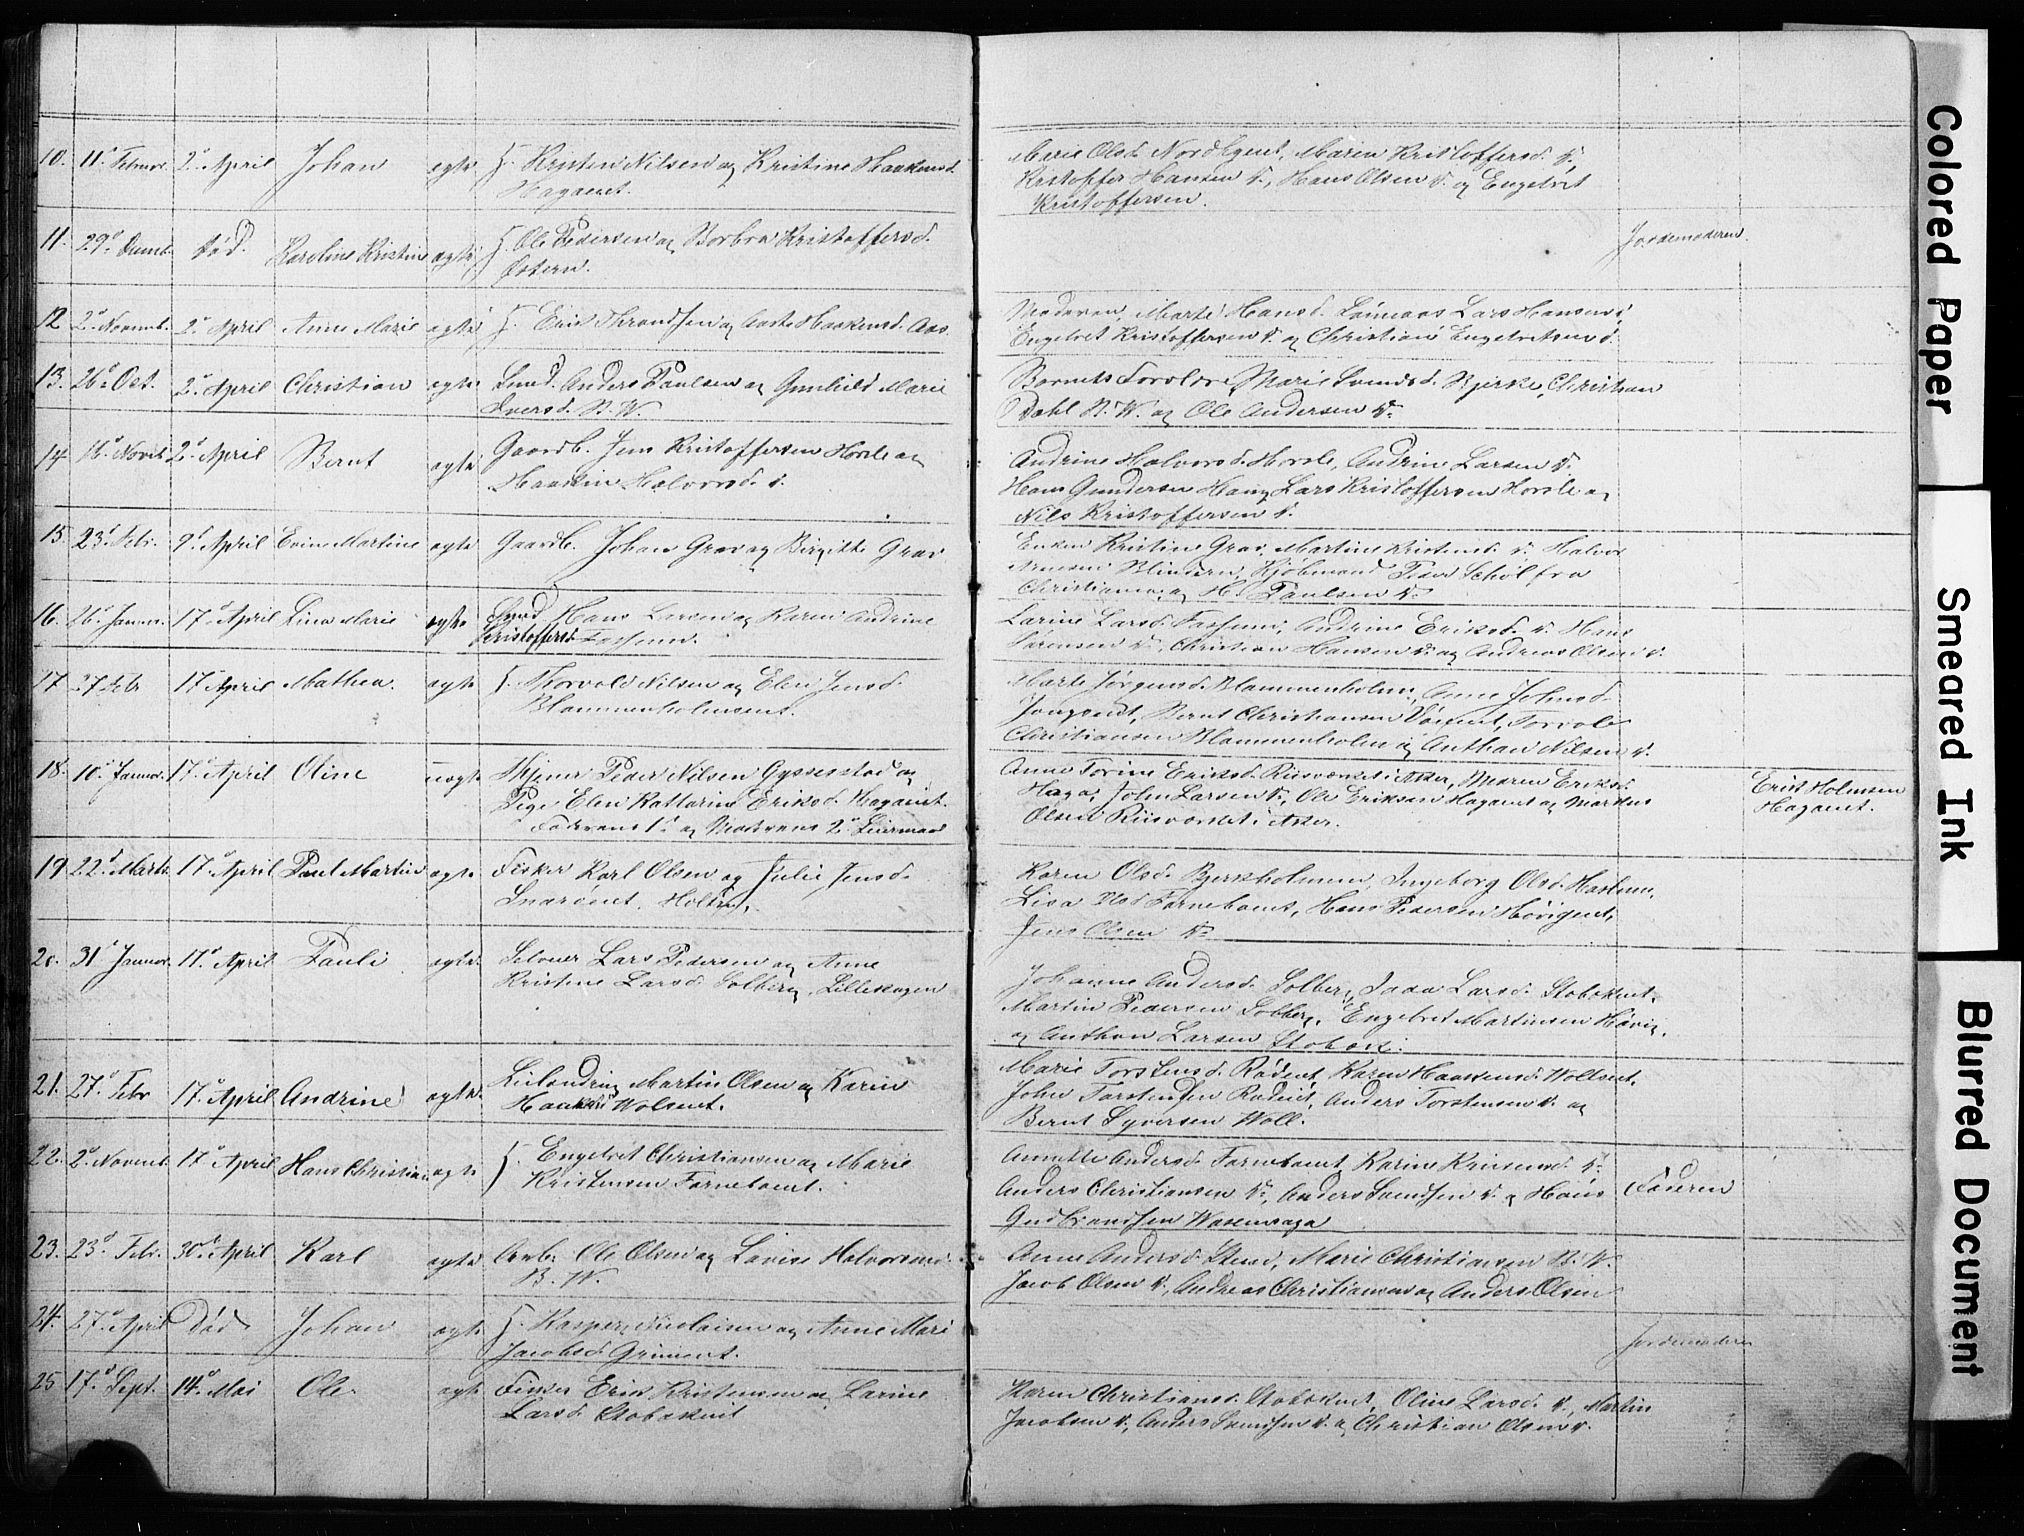 10. 11. Februar. 2. April Johan ægte f. Kristen Nilsen og Kristine Haakensd.
Hagaeiet.
Marie Olsd. Marin Kristoffersd. d.
Kristoffer Hansen d., Hans Olsen d. og Engebret
Kristoffersen.
11. 29. død. Karoline Kristine ægte f. Ole Pedersen og Borbra Kristoffersd.
Østern.
Jordemoderen.
12 2. Novemb. 2. April Anne Marie ægte f. Erik Throndsen og Aaste Haakensd. Aas.
Moderen, Marte Hansd. Lars Hansen
Engebret Kristoffersen d. og Christian Engebretsen d.
13. 26. Oct. 2. April Christian ægte Smed. Anders Paulsen og Gunhild Marie
Iversd. B. W.
Barnets Forældre, Marie Svendsd. Bjerke, Christian
Dahl B. W. og Ole Andersen d.
14 2. April Bernt ægte Gaardb. Jens Kristoffersen Horsle og
Halvorsd. d.
Andrine Halvorsd. Horsle, Andrine Larsen d.
Hans Gundersen Haug Lars Kristoffersen Horsle og
Nils Kristoffersen d.
15 23. Febr. 9. April Martine ægte Gaardb. Johan Grav og Birgitte Grav
Enken Kristine Grav, Martine Kristensd. d. Halvor
Blindern, Kjøbmand Peder Schøl fra
Christiania, og H. Paulsen d.
16. 26. Januar. 17. April Lina Marie ægte Smed Hans Larsen og Karen Andrine
Kristoffersd. Fossum.
Larine Larsd. Fossum, Andrine Eriksd. d. Hans
Sørensen d., Christian Hansen d. og Andreas Olsen d.
17 27 Febr 17 April Mathea. ægte f. Thorvald Nilsen og Elen Jensd.
Blommenholmeiet.
Marte Jørgensd. Blommenholm, Anne Johnsd.
Bernt Christiansen Torvald
Christiansen Blommenholm og Anthon Nilsen d.
18. 10. Januar. 17. April Oline uægte Peder Nilsen Gyssestad og
Pige Elen Kattarine Eriksd. Hagaeiet.
Faderens 1. og Moderens 2. Leiermaal
Anne Torine Eriksd. Riisværket i Asker, Maren Eriksd.
Haga, John Larsen d., Ole Eriksen Hagaeiet og Markus
Olsen Riisværket i Asker.
Erik Holmsen
Hagaeiet.
19 22. Marts. 17. April Paul Martin ægte Fisker Karl Olsen og Julie Jensd.
Snarøeiet, Holtet.
Karen Olsd. Bjerkholmen, Ingeborg Olsd. Haslum,
Lisa Olsd Tanebaaneiet, Hans Pedersen Høvigeiet,
Jens Olsen d.
20. 31 Januar. 17. April Pauli ægte. Selveier Lars Pedersen og Anne
Kristine Larsd. Solberg, Lilleskogen
Johanne Andersd. Solberg, Larsd. Stabækeiet,
Martin Pedersen Solberg, Engebret Martinsen Høvig,
og Anthon Larsen Stabæk.
21. 27. Febr 17. April Andrine ægte. Leilænding Martin Olsen og Karen
Haakensd. Woleiet.
Marie Torstensd. Rødeiet, Karen Haakensd. Wolleiet,
John Torstensen Rødeiet, Anders Torstensen d. og
Bernt Syversen Woll.
22. 2. Novemb. 17. April Hans Christian ægte f. Engebret Christiansen og Marie
Kristensen Tanebaaneiet.
Annette Andersd. Tanebaaneiet Karine Kristensd. d.
Anders Christiansen d., Anders Svendsen d. og Hans
Gudbrandsen
Faderen
23. 23. Febr. 30. April Karl ægte Arb. Ole Olsen og Lovise Halvorsen
B. W.
Anne Andersd. Marie Christiansen B. W.
Jacob Olsen d., Andreas Christiansen og Anders Olsen
24. 27. April Død Johan ægte f. Kasper Nicolaisen og Anne Mari
Jacobsd. Grinieiet.
Jordemoderen
25 17. Sept. 14. Mai Ole ægte Fisker Erik Kristensen og Larine
Larsd. Stabækeiet
Karen Christiansd. Stabækeiet, Oline Larsd. d., Martin
Jacobsen d., Anders Svendsen d. og Christian Olsen d.
Colored Paper
Smeared Ink
Blurred Document